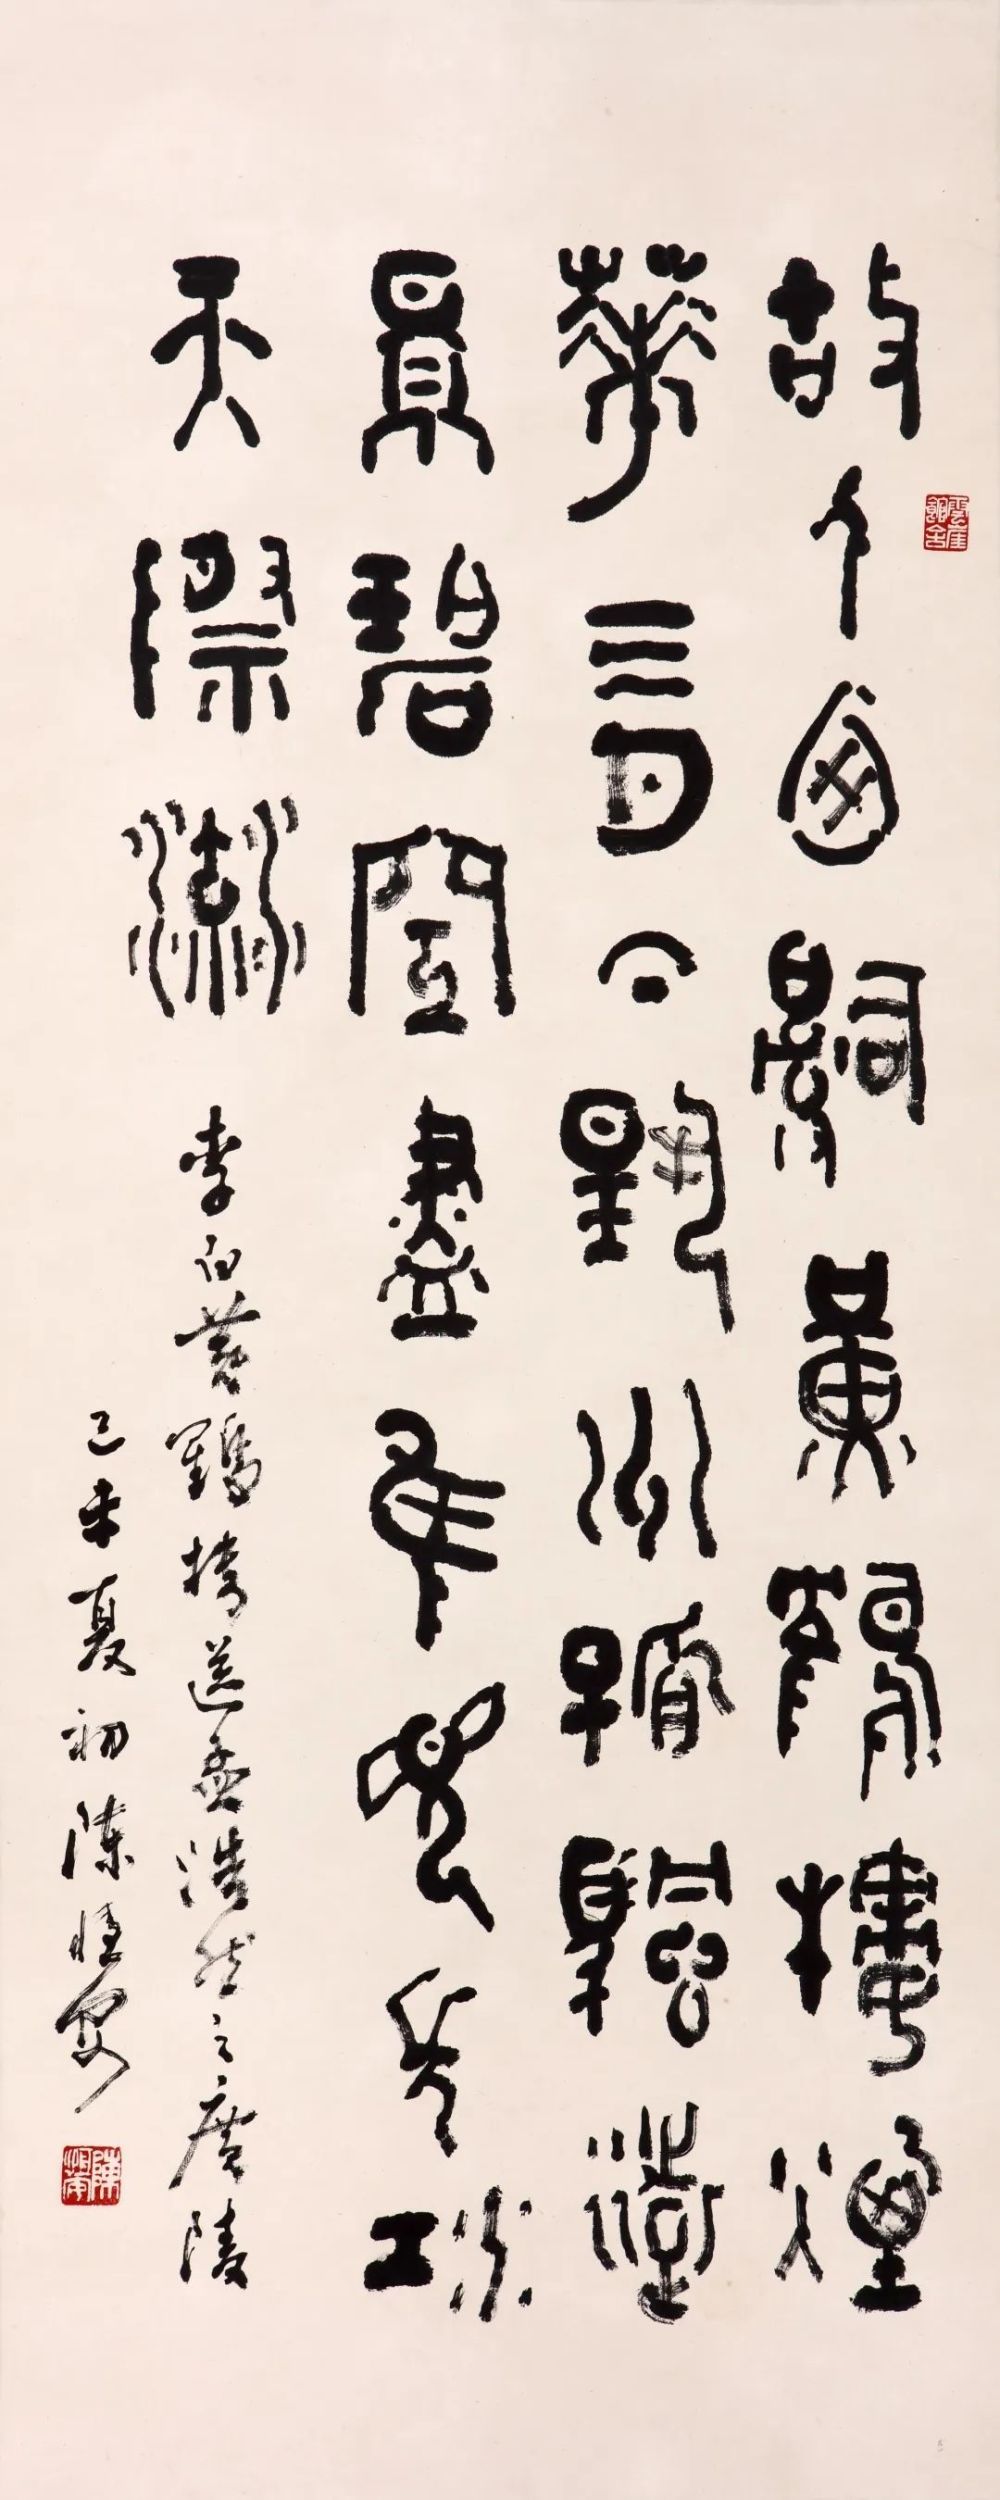 故人西辭黃鶴樓煙
華三月下揚州孤帆遠
景碧空盡隹見長江
天際流
李白黃鶴樓送孟浩然之廣陵
己未夏初陳恆安
陳恆安